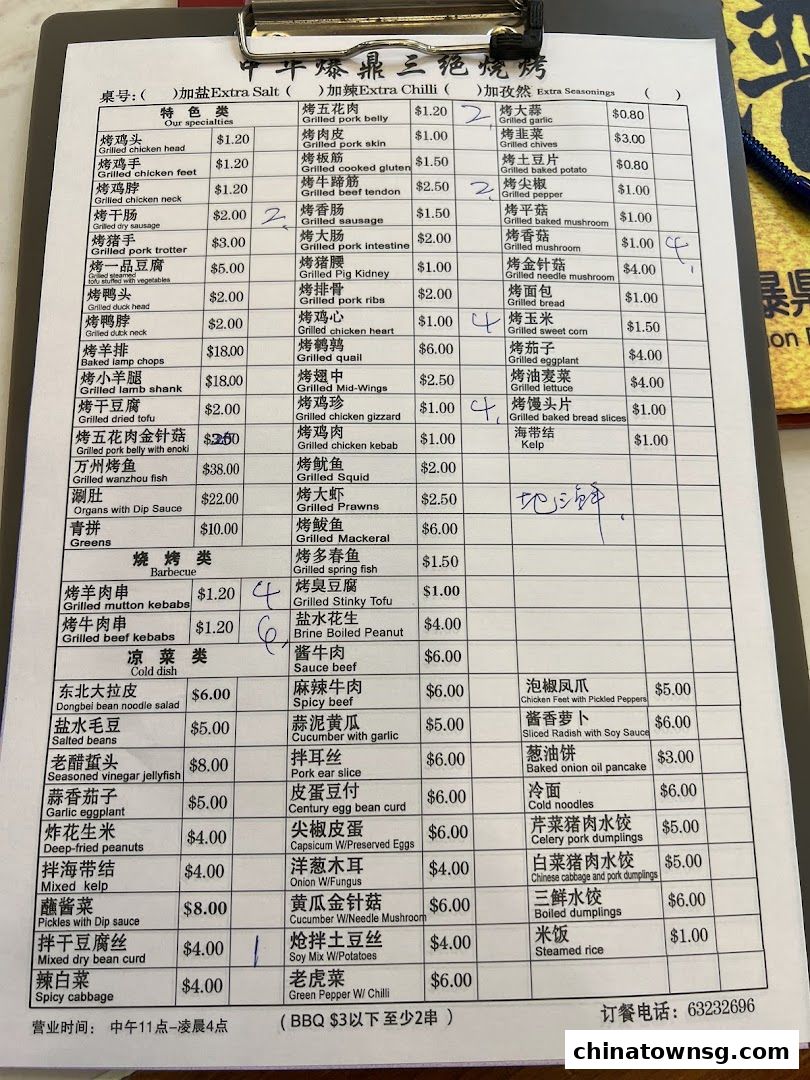 中华爆鼎三绝烧烤
桌号:( )加盐Extra Salt ( )加辣Extra Chilli ( )加孜然 Extra Seasonings ( )
特色类
Our specialties
烤鸡头 $1.20
Grilled chicken head
烤鸡手 $1.20
Grilled chicken feet
烤鸡脖 $1.20
Grilled chicken neck
烤干肠 $2.00 2
Grilled dry sausage
烤猪手 $3.00
Grilled pork trotter
烤一品豆腐 $5.00
Grilled steamed
tofu stuffed with vegetables
烤鸭头 $2.00
Grilled duck head
烤鸭脖 $2.00
Grilled duck neck
烤羊排 $18.00
Baked lamp chops
烤小羊腿 $18.00
Grilled lamb shank
烤干豆腐 $2.00
Grilled dried tofu
烤五花肉金针菇
Grilled pork belly with enoki
万州烤鱼 $38.00
Grilled wanzhou fish
涮肚 $22.00
Organs with Dip Sauce
青拼 $10.00
Greens
烧烤类
Barbecue
烤羊肉串 $1.20 4
Grilled mutton kebabs
烤牛肉串 $1.20 6
Grilled beef kebabs
凉菜类
Cold dish
东北大拉皮 $6.00
Dongbei bean noodle salad
盐水毛豆 $5.00
Salted beans
老醋蜇头 $8.00
Seasoned vinegar jellyfish
蒜香茄子 $5.00
Garlic eggplant
炸花生米 $4.00
Deep-fried peanuts
拌海带结 $4.00
Mixed kelp
蘸酱菜 $8.00
Pickles with Dip sauce
拌干豆腐丝 $4.00 1
Mixed dry bean curd
辣白菜 $4.00
Spicy cabbage
烤五花肉 $1.20 2
Grilled pork belly
烤肉皮 $1.00
Grilled pork skin
烤板筋 $1.50
Grilled cooked gluten
烤牛蹄筋 $2.50 2
Grilled beef tendon
烤香肠 $1.50
Grilled sausage
烤大肠 $2.00
Grilled pork intestine
烤猪腰 $1.00
Grilled Pig Kidney
烤排骨 $2.00
Grilled pork ribs
烤鸡心 $1.00 4
Grilled chicken heart
烤鹌鹑 $6.00
Grilled quail
烤翅中 $2.50
Grilled Mid-Wings
烤鸡珍 $1.00 4
Grilled chicken gizzard
烤鸡肉 $1.00
Grilled chicken kebab
烤鱿鱼 $2.00
Grilled Squid
烤大虾 $2.50
Grilled Prawns
烤鲅鱼 $6.00
Grilled Mackeral
烤多春鱼 $1.50
Grilled spring fish
烤臭豆腐 $1.00
Grilled Stinky Tofu
盐水花生 $4.00
Brine Boiled Peanut
酱牛肉 $6.00
Sauce beef
麻辣牛肉 $6.00
Spicy beef
蒜泥黄瓜 $5.00
Cucumber with garlic
拌耳丝 $6.00
Pork ear slice
皮蛋豆付 $6.00
Century egg bean curd
尖椒皮蛋 $6.00
Capsicum W/Preserved Eggs
洋葱木耳 $4.00
Onion W/Fungus
黄瓜金针菇 $6.00
Cucumber W/Needle Mushroom
炝拌土豆丝 $4.00
Soy Mix W/Potatoes
老虎菜 $6.00
Green Pepper W/ Chilli
烤大蒜 $0.80
Grilled garlic
烤韭菜 $3.00
Grilled chives
烤土豆片 $0.80
Grilled baked potato
烤尖椒 $1.00
Grilled pepper
烤平菇 $1.00
Grilled baked mushroom
烤香菇 $1.00 4
Grilled mushroom
烤金针菇 $4.00
Grilled needle mushroom
烤面包 $1.00
Grilled bread
烤玉米 $1.50
Grilled sweet corn
烤茄子 $4.00
Grilled eggplant
烤油麦菜 $4.00
Grilled lettuce
烤馒头片 $1.00
Grilled baked bread slices
海带结 $1.00
Kelp
地三鲜
泡椒凤爪 $5.00
Chicken Feet with Pickled Peppers
酱香萝卜 $6.00
Sliced Radish with Soy Sauce
葱油饼 $3.00
Baked onion oil pancake
冷面 $6.00
Cold noodles
芹菜猪肉水饺 $5.00
Celery pork dumplings
白菜猪肉水饺 $5.00
Chinese cabbage and pork dumplings
三鲜水饺 $6.00
Boiled dumplings
米饭 $1.00
Steamed rice
营业时间: 中午11点-凌晨4点 (BBQ $3以下至少2串) 订餐电话: 63232696
chinatownsg.com